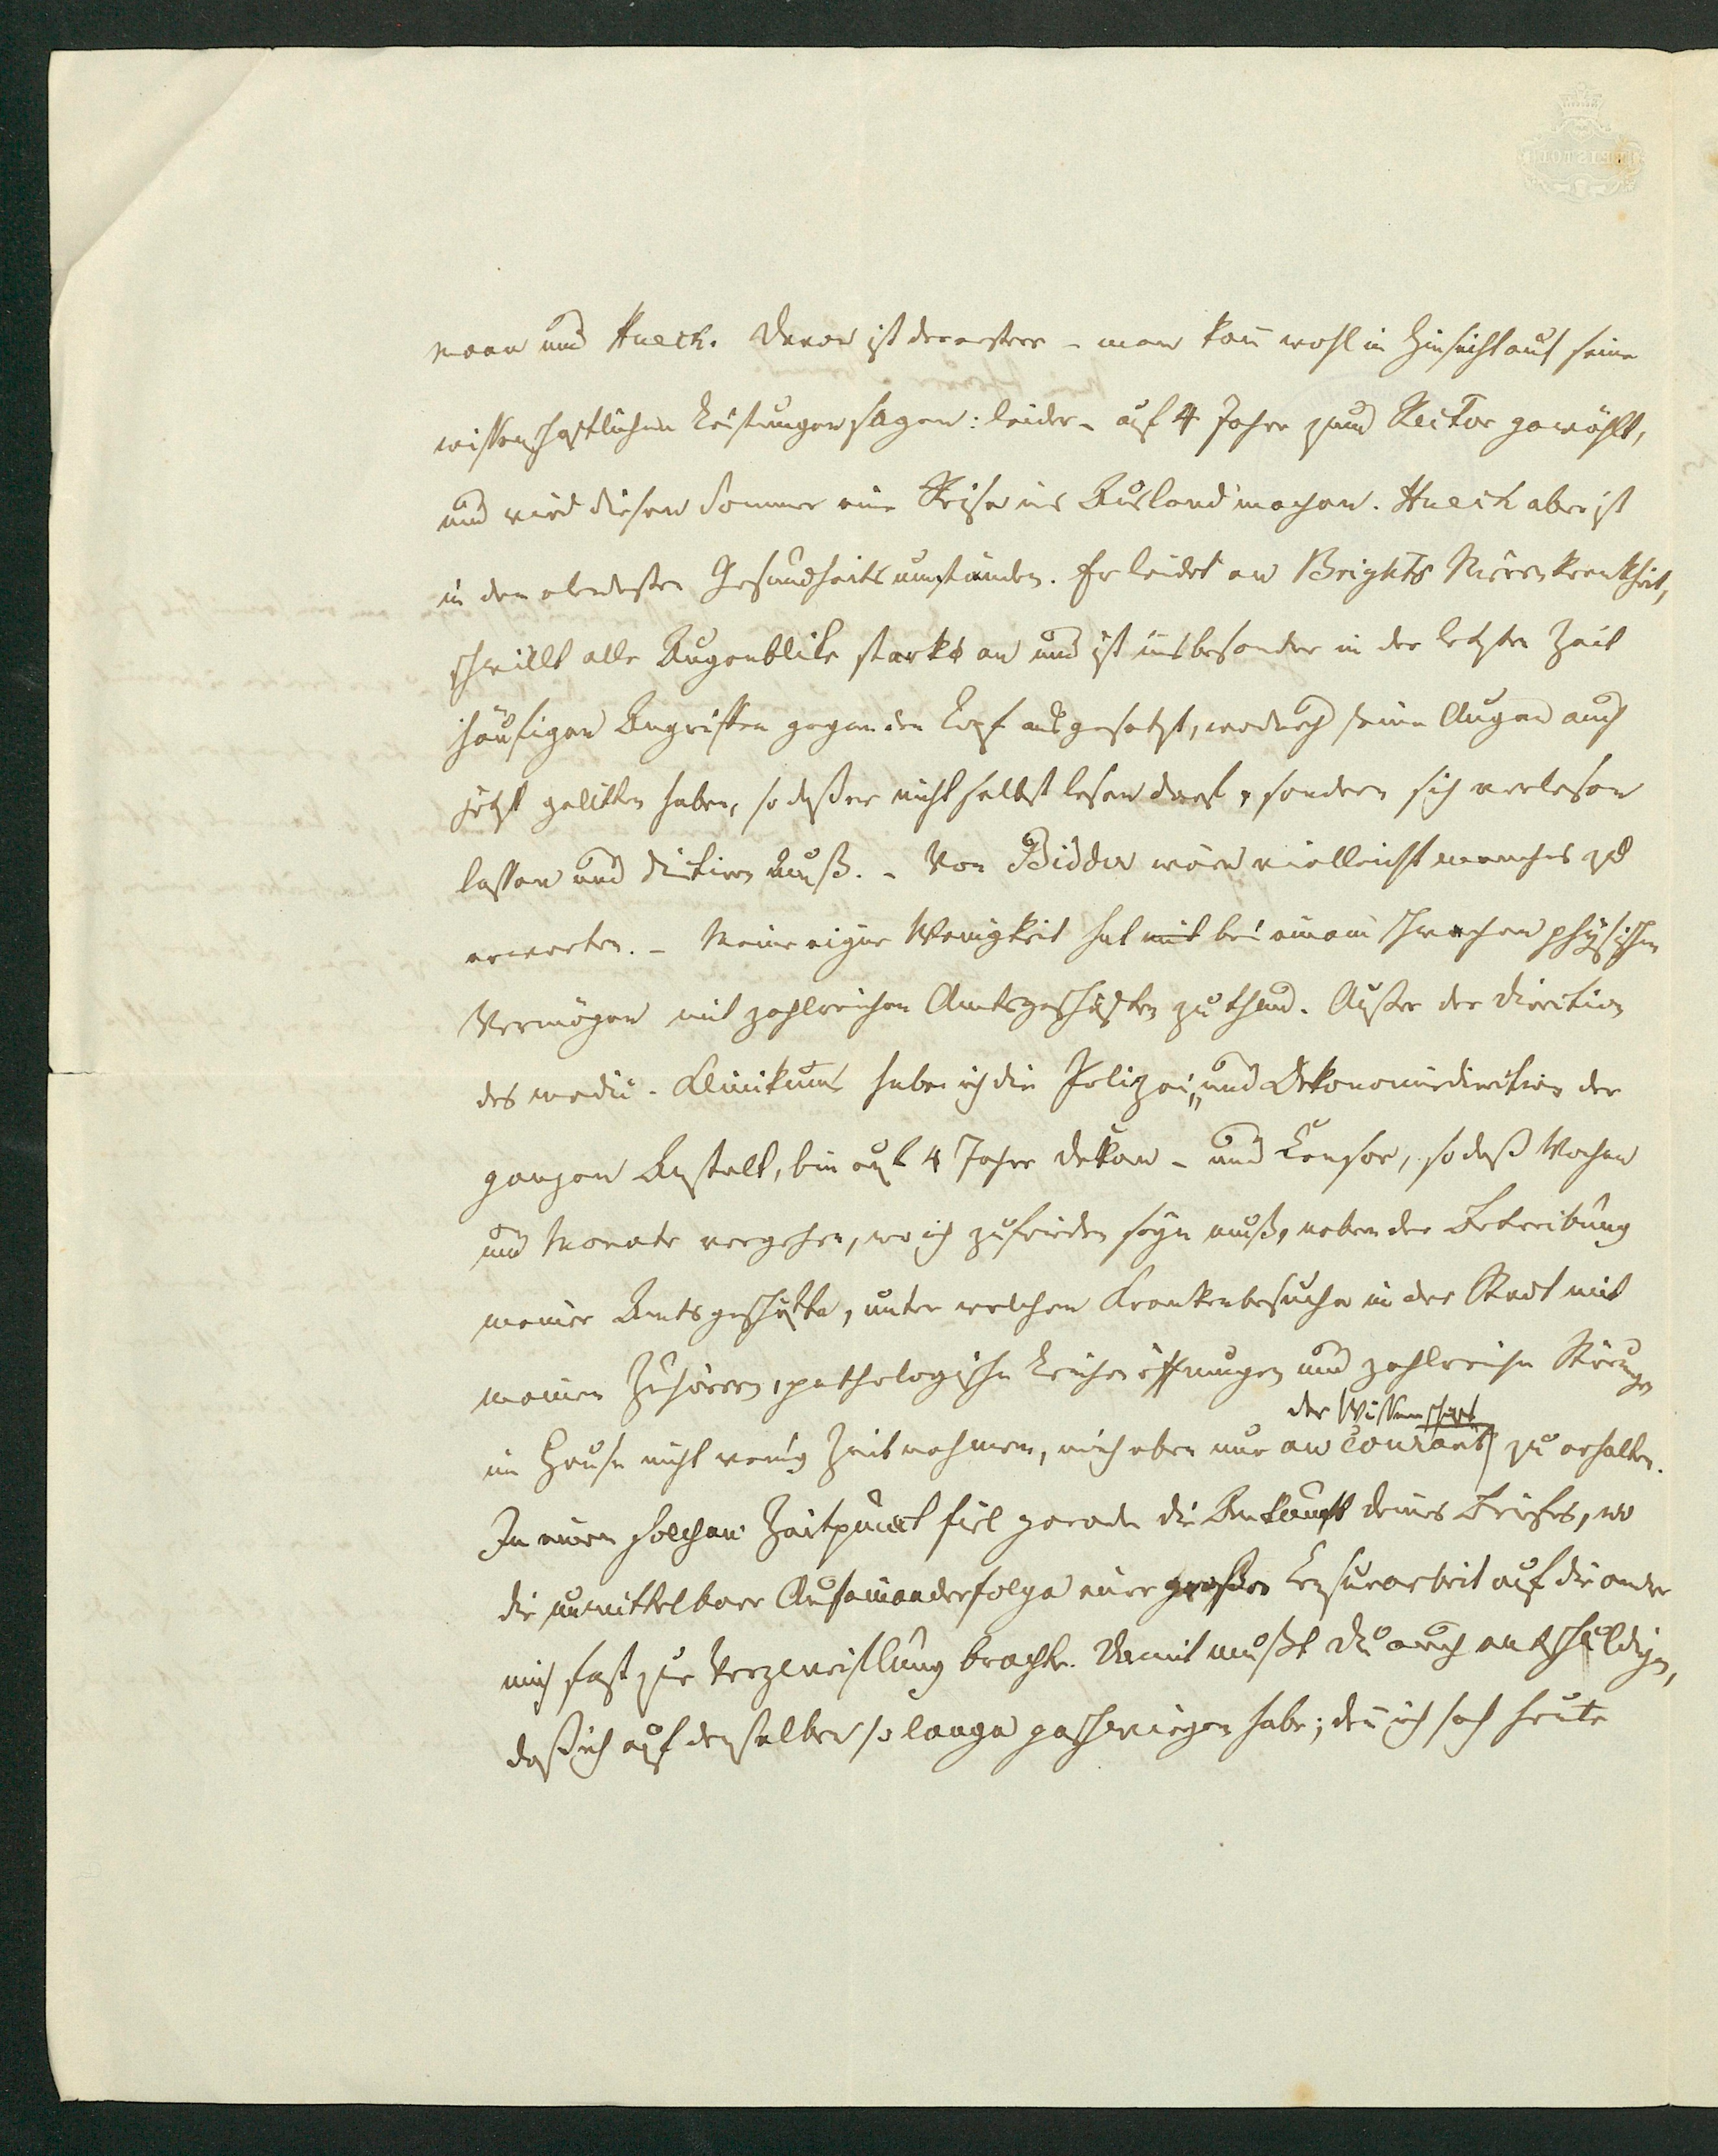 mann und Hueck. Davon ist der erstere – man kann wohl in Hinsicht auf seine
wissenschaftlichen Leistungen sagen: leider – auf 4 Jahre zum Rector gewählt,
und wird diesen Sommer eine Reise ins Ausland machen. Hueck aber ist
in den elendesten Gesundheitsumständen. Er leidet an Brights Nierenkrankheit,
schwillt alle Augenblike stark an und ist insbesondere in der letzten Zeit
häufigen Angriffen gegen den Kopf ausgesetzt, wodurch seine Augen auch
jetzt gelitten haben, so daß er nicht selbst lesen darf, sondern sich vorlesen
lassen und dictiren muß. – Von Bidder wäre vielleicht manches zu
erwarten. – Meine eigne Wenigkeit hat mit bei einem schwachen physischen
Vermögen mit zahlreichen Amtsgeschäften zu thun. Außer der Direction
des medic. Klinikums habe ich die Polizei- und Oekonomiedirection der
ganzen Anstalt, bin auf 4 Jahre Dekan – und Censor, so daß Wochen
und Monate vergehen, wo ich zufrieden seyn muß, neben der Betreibung
meiner Amtsgeschäfte, unter welchen Krankenbesuche in der Stadt mit
meinen Zuhörern, pathologische Leichenöffnungen und zahlreiche Störungen
der Wissenschaft
im Hause nicht wenig Zeit nehmen, mich eben nur au courant zu erhalten.
In einen solchen Zeitpunct fiel gerade die Ankunft deines Briefes, wo
die unmittelbare Aufeinanderfolge einer großen Censurarbeit auf die andre
mich fast zur Verzweiflung brachte. Damit mußt Du auch entschuldigen,
daß ich auf denselben so lange geschwiegen habe; denn ich sah heute